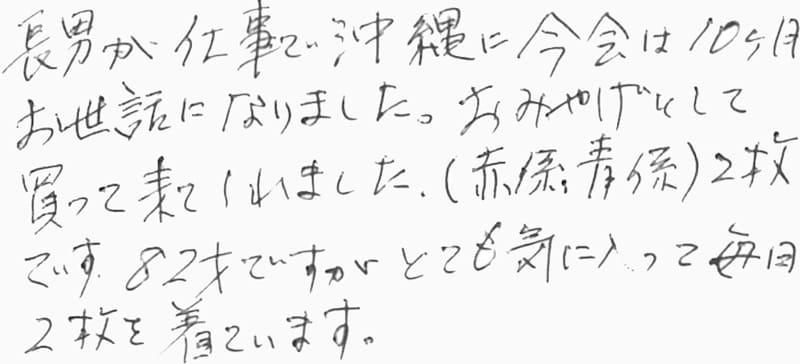 長男が仕事で沖縄に今会は10ヶ月
お世話になりました。おみやげとして
買って来てくれました.(赤係,青係)2枚
です.82才ですがとても気に入って毎日
2枚を着ています。